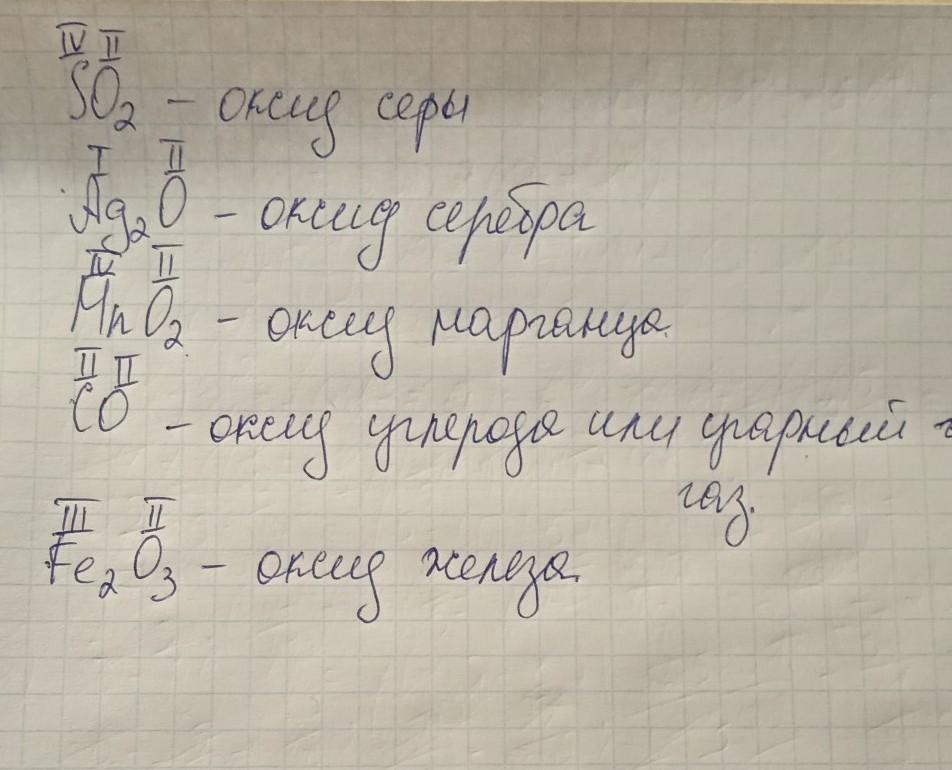 IV II
SO₂ – оксид серы
I II
Ag₂O – оксид серебра
IV II
MnO₂ – оксид марганца.
II II
CO – оксид углерода или угарный
газ.
III II
Fe₂O₃ – оксид железа.